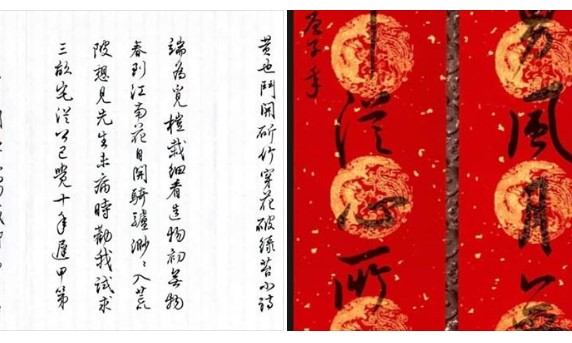 黄也鬥開斫竹穿花破緑苔小詩
端為覓榿栽細看造物初無物
春到江南花自開騎驢渺々入荒
陂想見先生未病時勸我試求
三畝宅從公已覺十年遲甲第
風月
從心所
庚子年